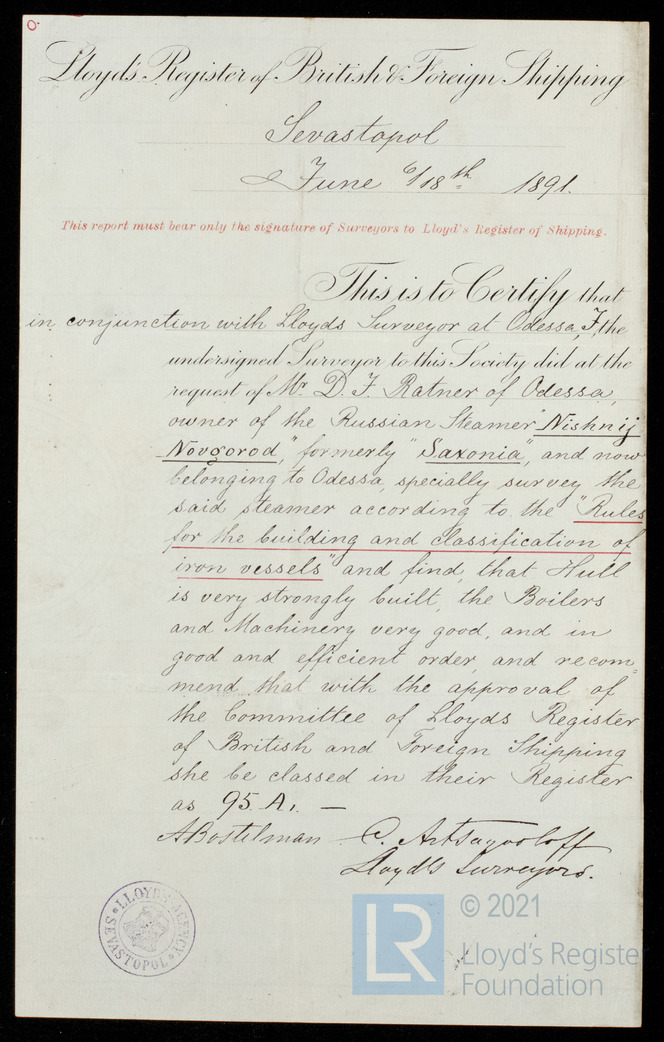 Lloyd's Register of British & Foreign Shipping
Sevastopol
June 6/18th 1891.
This report must bear only the signature of Surveyors to Lloyd's Register of Shipping.
This is to Certify that
in conjunction with Lloyds Surveyor at Odessa, I, the
undersigned Surveyor to this Society did at the
request of Mr. D. F. Ratner of Odessa,
owner of the Russian Steamer "Nishnij
Novgorod," formerly "Saxonia", and now
belonging to Odessa, specially survey the
said steamer according to the "Rules
for the building and classification of
iron vessels" and find, that Hull
is very strongly built, the Boilers
and Machinery very good, and in
good and efficient order, and recom=
mend that with the approval of
the Committee of Lloyds Register
of British and Foreign Shipping
she be classed in their Register
as 95 A1. —
A Bostelman C.
Lloyd's Surveyors.
LLOYD'S AGENCY
SEVASTOPOL
LR
© 2021
Lloyd's Registe
Foundation